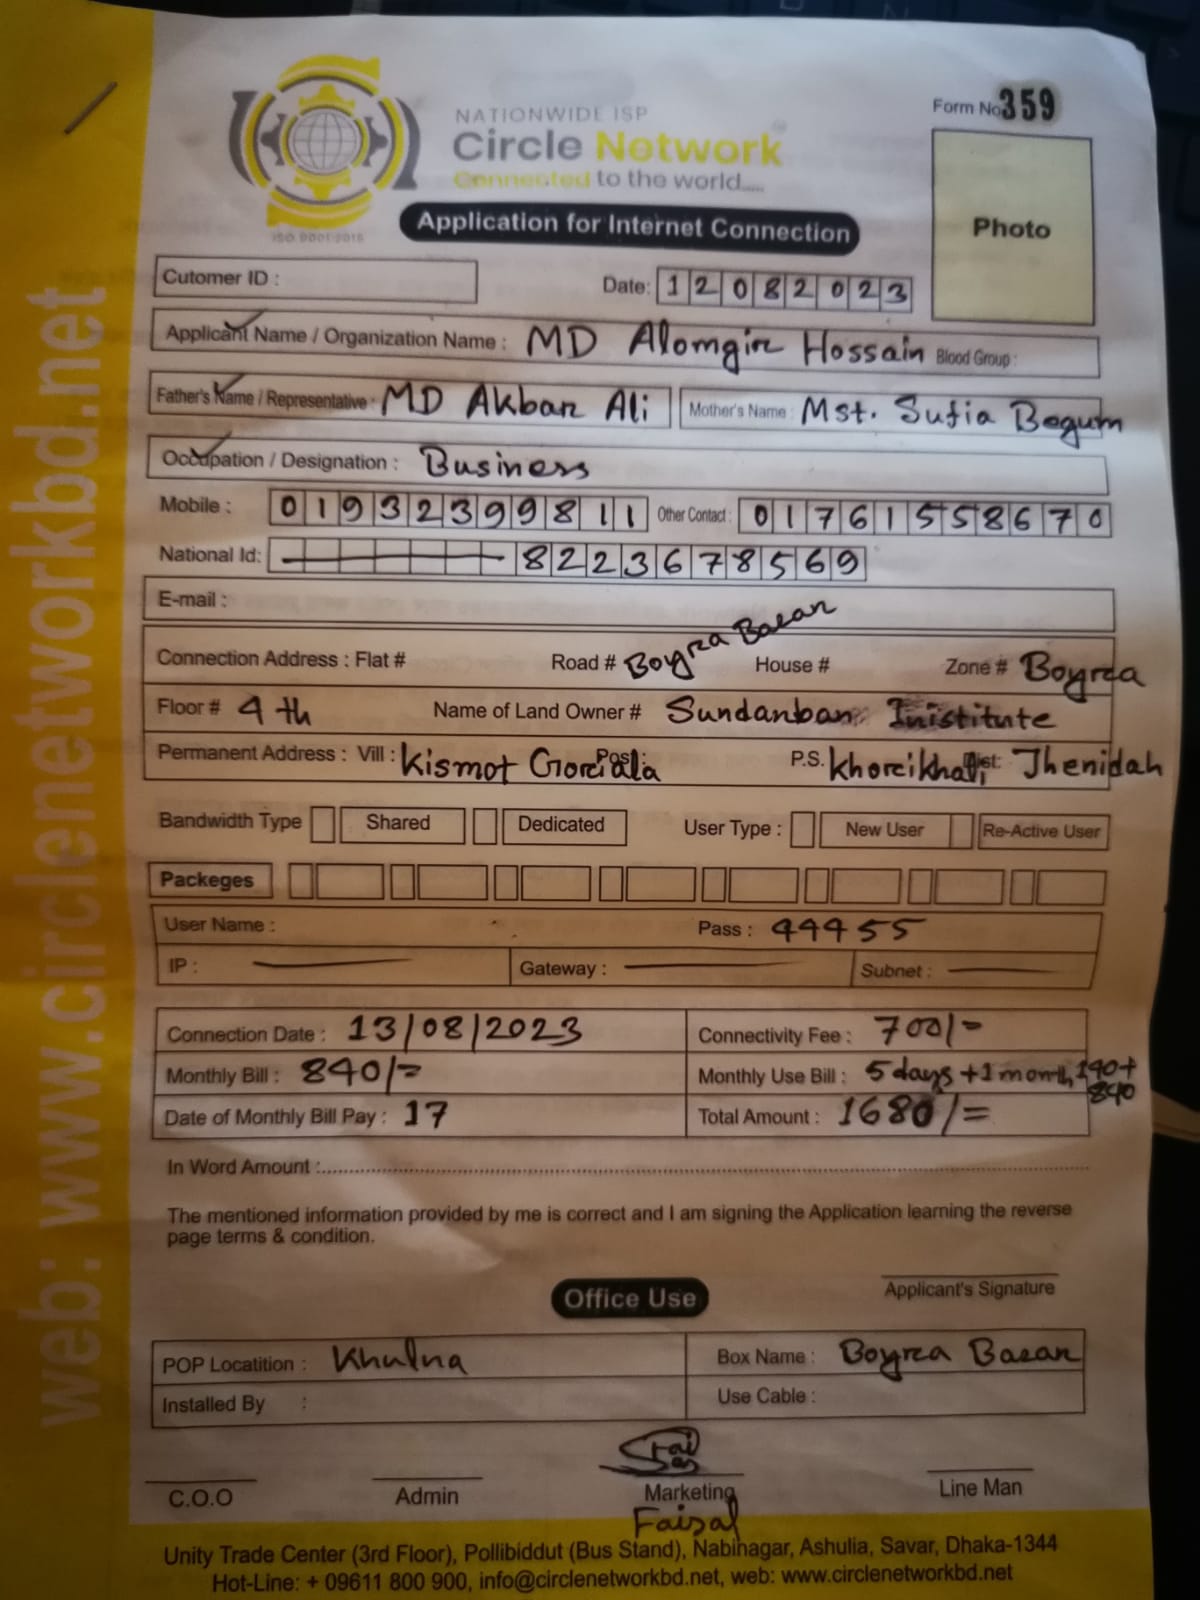 NATIONWIDE ISP
Circle Network
Connected to the world.....
ISO 9001:2015
Form No 359
Photo
Application for Internet Connection
Cutomer ID :
Date: 12082023
Applicant Name / Organization Name : MD Alomgir Hossain Blood Group :
Father's Name / Representative : MD Akbar Ali Mother's Name : Mst. Sufia Begum
Occupation / Designation : Business
Mobile : 01932399811 Other Contact : 01761558670
National Id: 8223678569
E-mail :
Connection Address : Flat # Road # Boyra Bazar House # Zone # Boyra
Floor # 4th Name of Land Owner # Sundanban Inistitute
Permanent Address : Vill : Kismot Post: P.S. Dist: Jhenidah
Bandwidth Type Shared Dedicated User Type : New User Re-Active User
Packeges
User Name : Pass : 44455
IP : Gateway : Subnet :
Connection Date : 13/08/2023 Connectivity Fee : 700/=
Monthly Bill : 840/= Monthly Use Bill : 5 days +1 month, 140+ 840
Date of Monthly Bill Pay : 17 Total Amount : 1680/=
In Word Amount :
The mentioned information provided by me is correct and I am signing the Application learning the reverse
page terms & condition.
Applicant's Signature
Office Use
POP Locatition : Khulna Box Name : Boyra Bazar
Installed By : Use Cable :
C.O.O Admin Marketing Line Man
Faisal
Unity Trade Center (3rd Floor), Pollibiddut (Bus Stand), Nabinagar, Ashulia, Savar, Dhaka-1344
Hot-Line: + 09611 800 900, info@circlenetworkbd.net, web: www.circlenetworkbd.net
web: www.circlenetworkbd.net